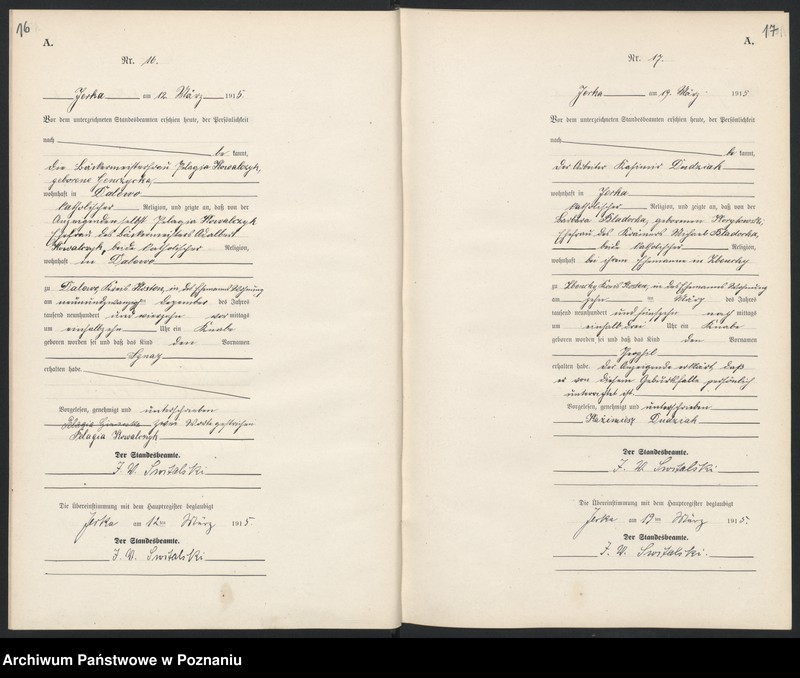 16
A.
Nr. 16.
Jerka am 12. März 1915.
Vor dem unterzeichneten Standesbeamten erschien heute, der Persönlichkeit
nach
be kannt,
die Bäckermeisterfrau Pelagia Kowalczyk,
geborene
wohnhaft in Dalewo
katholischer Religion, und zeigte an, daß von der
Anzeigenden selbst Pelagia Kowalczyk
Ehefrau des Bäckermeisters Adalbert
Kowalczyk, beide katholischer Religion,
wohnhaft in Dalewo
zu Dalewo, Kreis in der Ehemanns Wohnung
am neunundzwanzigsten Dezember des Jahres
tausend neunhundert und vierzehn vor mittags
um einhalbzehn Uhr ein Knabe
geboren worden sei und daß das Kind den Vornamen
Ignaz
erhalten habe
Vorgelesen, genehmigt und unterschrieben
Pelagia zwei Worte gestrichen
Pelagia Kowalczyk
Der Standesbeamte.
J. V. Switalski
Die Übereinstimmung mit dem Hauptregister beglaubigt
Jerka am 12ten März 1915.
Der Standesbeamte.
J. V. Switalski
17
A.
Nr. 17.
Jerka am 19. März 1915
Vor dem unterzeichneten Standesbeamten erschien heute, der Persönlichkeit
nach
be kannt,
der Arbeiter Kasimir Dudziak
wohnhaft in Jerka
katholischer Religion, und zeigte an, daß von der
Barbara geborenen
Ehefrau des Krämers Michael
beide katholischer Religion,
wohnhaft bei ihrem Ehemanne in Zbenchy
zu Zbenchy Kreis Kosten, in des Ehemanns Wohnung
am zehn ten März des Jahres
tausend neunhundert und fünfzehn nach mittags
um einhalb drei Uhr ein Knabe
geboren worden sei und daß das Kind den Vornamen
erhalten habe. Der Anzeigende erklärt, daß
er von diesem Geburtsfalle persönlich
unterrichtet ist.
Vorgelesen, genehmigt und unterschrieben
Kaźimierz Dudziak
Der Standesbeamte.
J. V. Switalski
Die Übereinstimmung mit dem Hauptregister beglaubigt
Jerka am 19ten März 1915.
Der Standesbeamte.
J. V. Switalski.
Archiwum Państwowe w Poznaniu